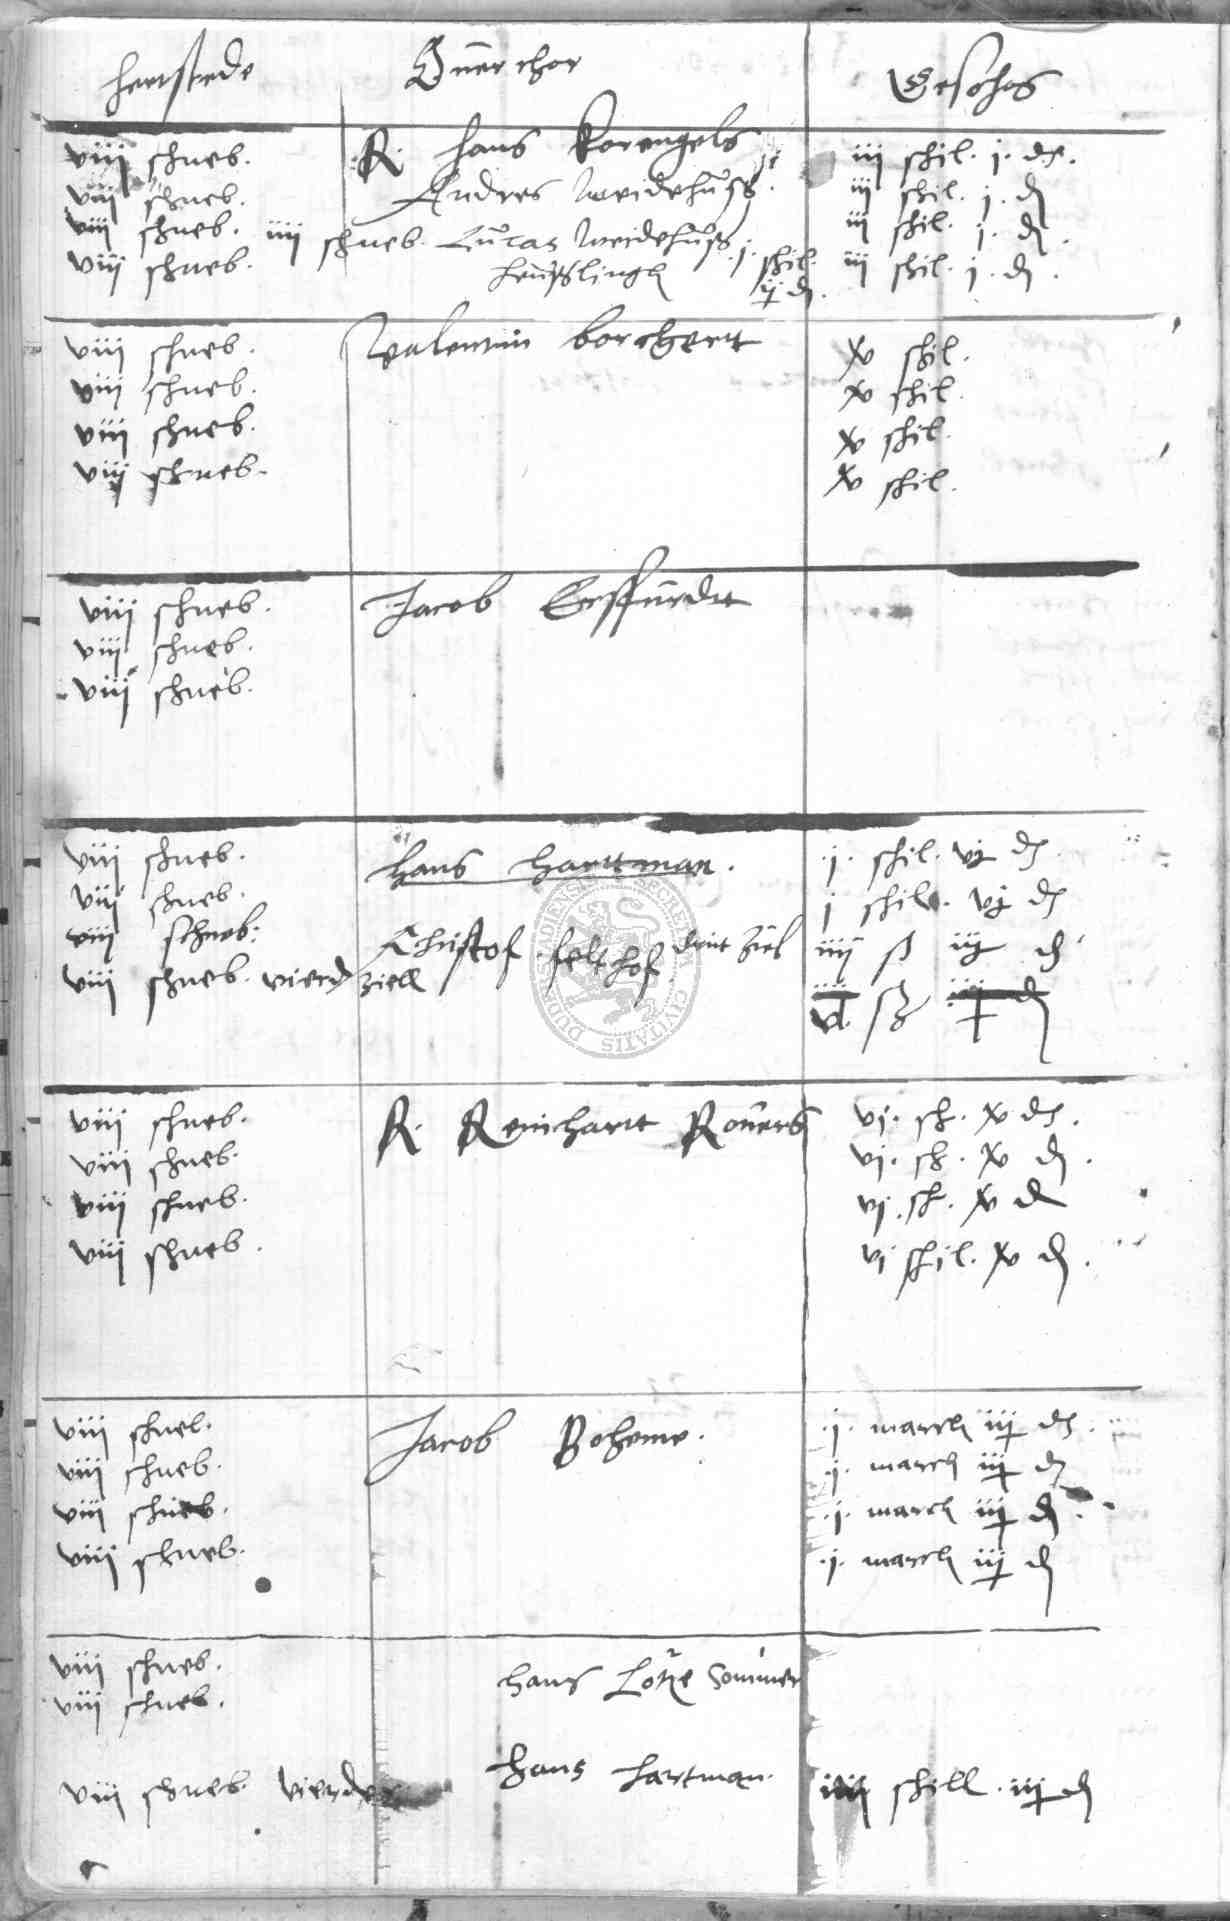 hertstede Querchor Geschos
viij schneb. R. Hans Korengels iij schil. j. d.
viij schneb. Andres Weidehuß iij schil. j. d
viij schneb. iiij schneb. Lucas Weidehuß j. schil. iij schil. j. d.
viij schneb. d. iij schil. j. d.
viij schneb. Valentin borchertt xv schil.
viij schneb. xv schil.
viij schneb. xv schil.
viij schneb. xv schil.
viij schneb. Jacob Erffurdtt
viij schneb.
viij schneb.
viij schneb. Hans Harttman. j. schil. vj d
viij schneb. j schil. vj d
viij schneb. Christof felthof drit ziel iiij ß iij d
viij schneb. vierd ziell vj. ß iij d
viij schneb. R. Reinhartt Roners vj. sch. xv d.
viij schneb. vj. sch. xv d.
viij schneb. vj. sch. xv d
viij schneb. vj schil. xv d.
viij schneb. Jacob Boheme. j. march iij d.
viij schneb. j. march iij d
viij schneb. j. march iij d.
viij schneb. j. march iij d
viij schneb. Hans Lotze Sommer
viij schneb.
viij schneb. vierde Hans Hartman. iiij schill. iij d
SECRETUM CIVITATIS DUDERSTADIENSIS